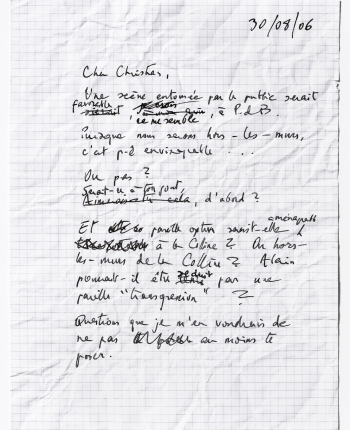 30/08/06
Cher Christian,
Une scène entourée par le public serait
favorable, ce me semble, à P. d B.
Puisque nous serons hors-les-murs,
c'est p-ê envisageable . . .
Ou pas ?
Serait-ce à ton goût, d'abord ?
aménageable
Et pareille option serait-elle
à la Colline ? Ou hors-
les-murs de la Colline ? Alain
pourrait-il être séduit par une
pareille "transgression" ?
Questions que je m'en voudrais de
ne pas au moins te
poser.